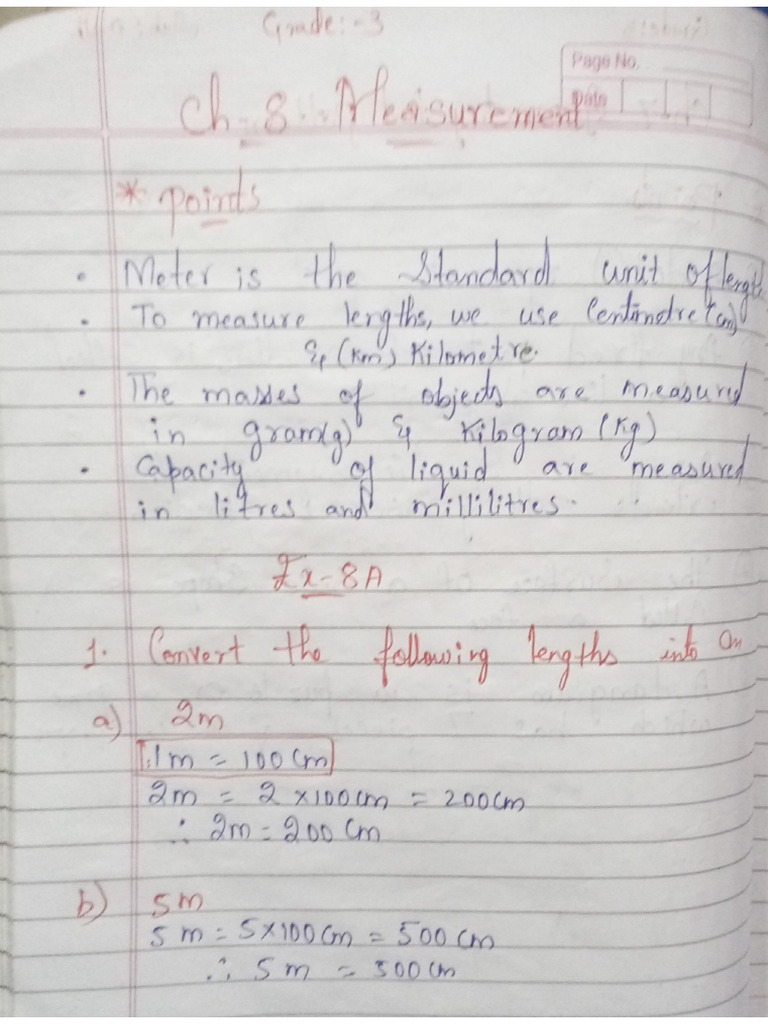 Grade:-3
Page No.
Date
Ch-8. Measurement
* points
• Meter is the Standard unit of length
• To measure lengths, we use Centimetre (cm)
& (Km) Kilometre.
• The masses of objects are measured
in gram(g) & Kilogram (Kg)
• Capacity of liquid are measured
in litres and millilitres.
Ex-8A
1. Convert the following lengths into Cm
a) 2m
∴ 1m = 100Cm
2m = 2 ×100cm = 200cm
∴ 2m = 200 Cm
b) 5m
5m = 5×100Cm = 500cm
∴ 5m = 500cm